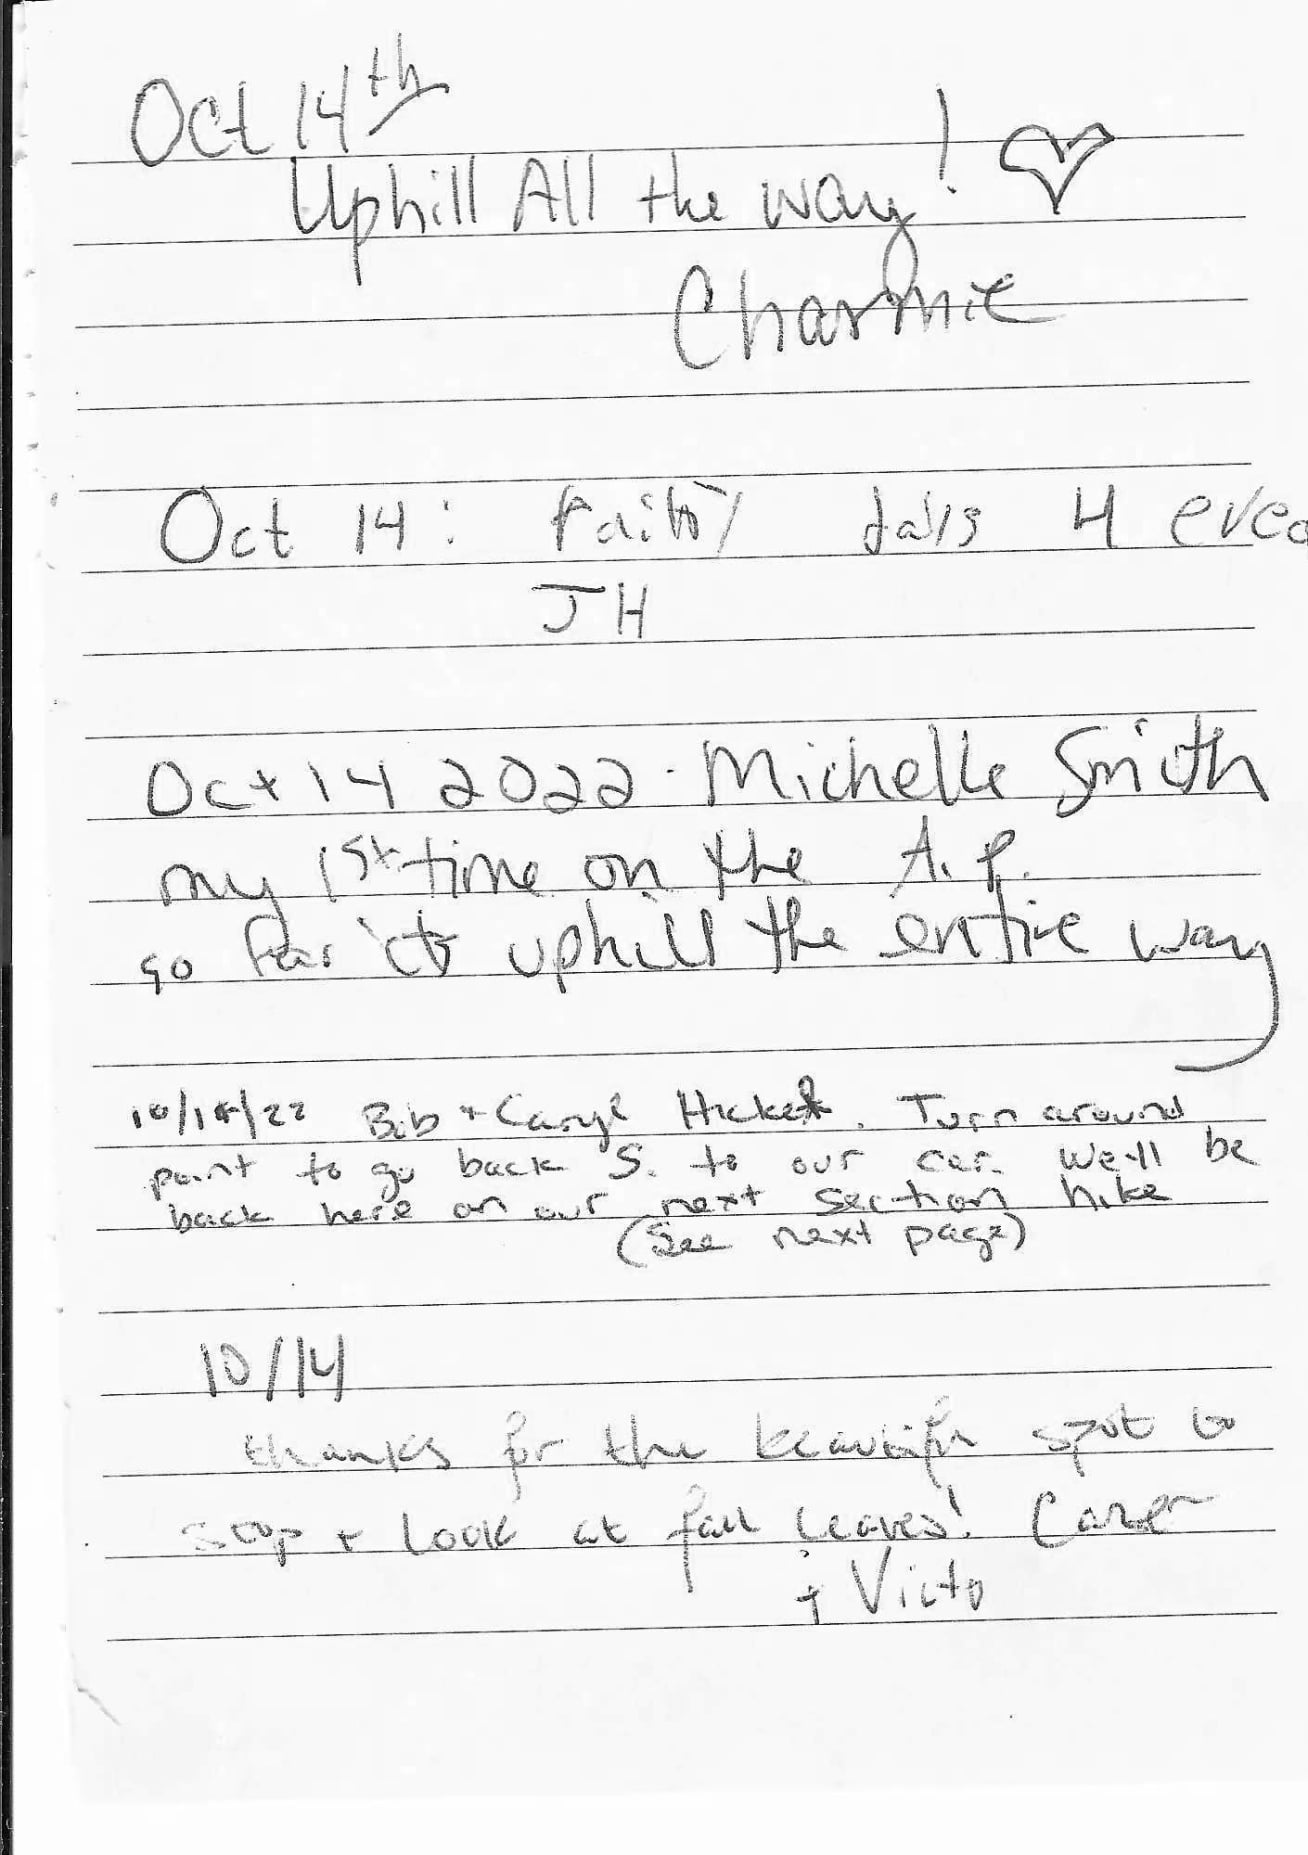 Oct 14th
Uphill All the way!
Charmie
Oct 14: 4
JH
Oct 14 2022. Michelle Smith
my 1st time on the A.P.
so far it's uphill the entire way
10/14/22 Bob + Turn around
point to go back S. to our car. We'll be
back here on our next section hike
(See next page)
10/14
thanks for the beautiful spot to
stop + look at fall leaves!
+ Victo